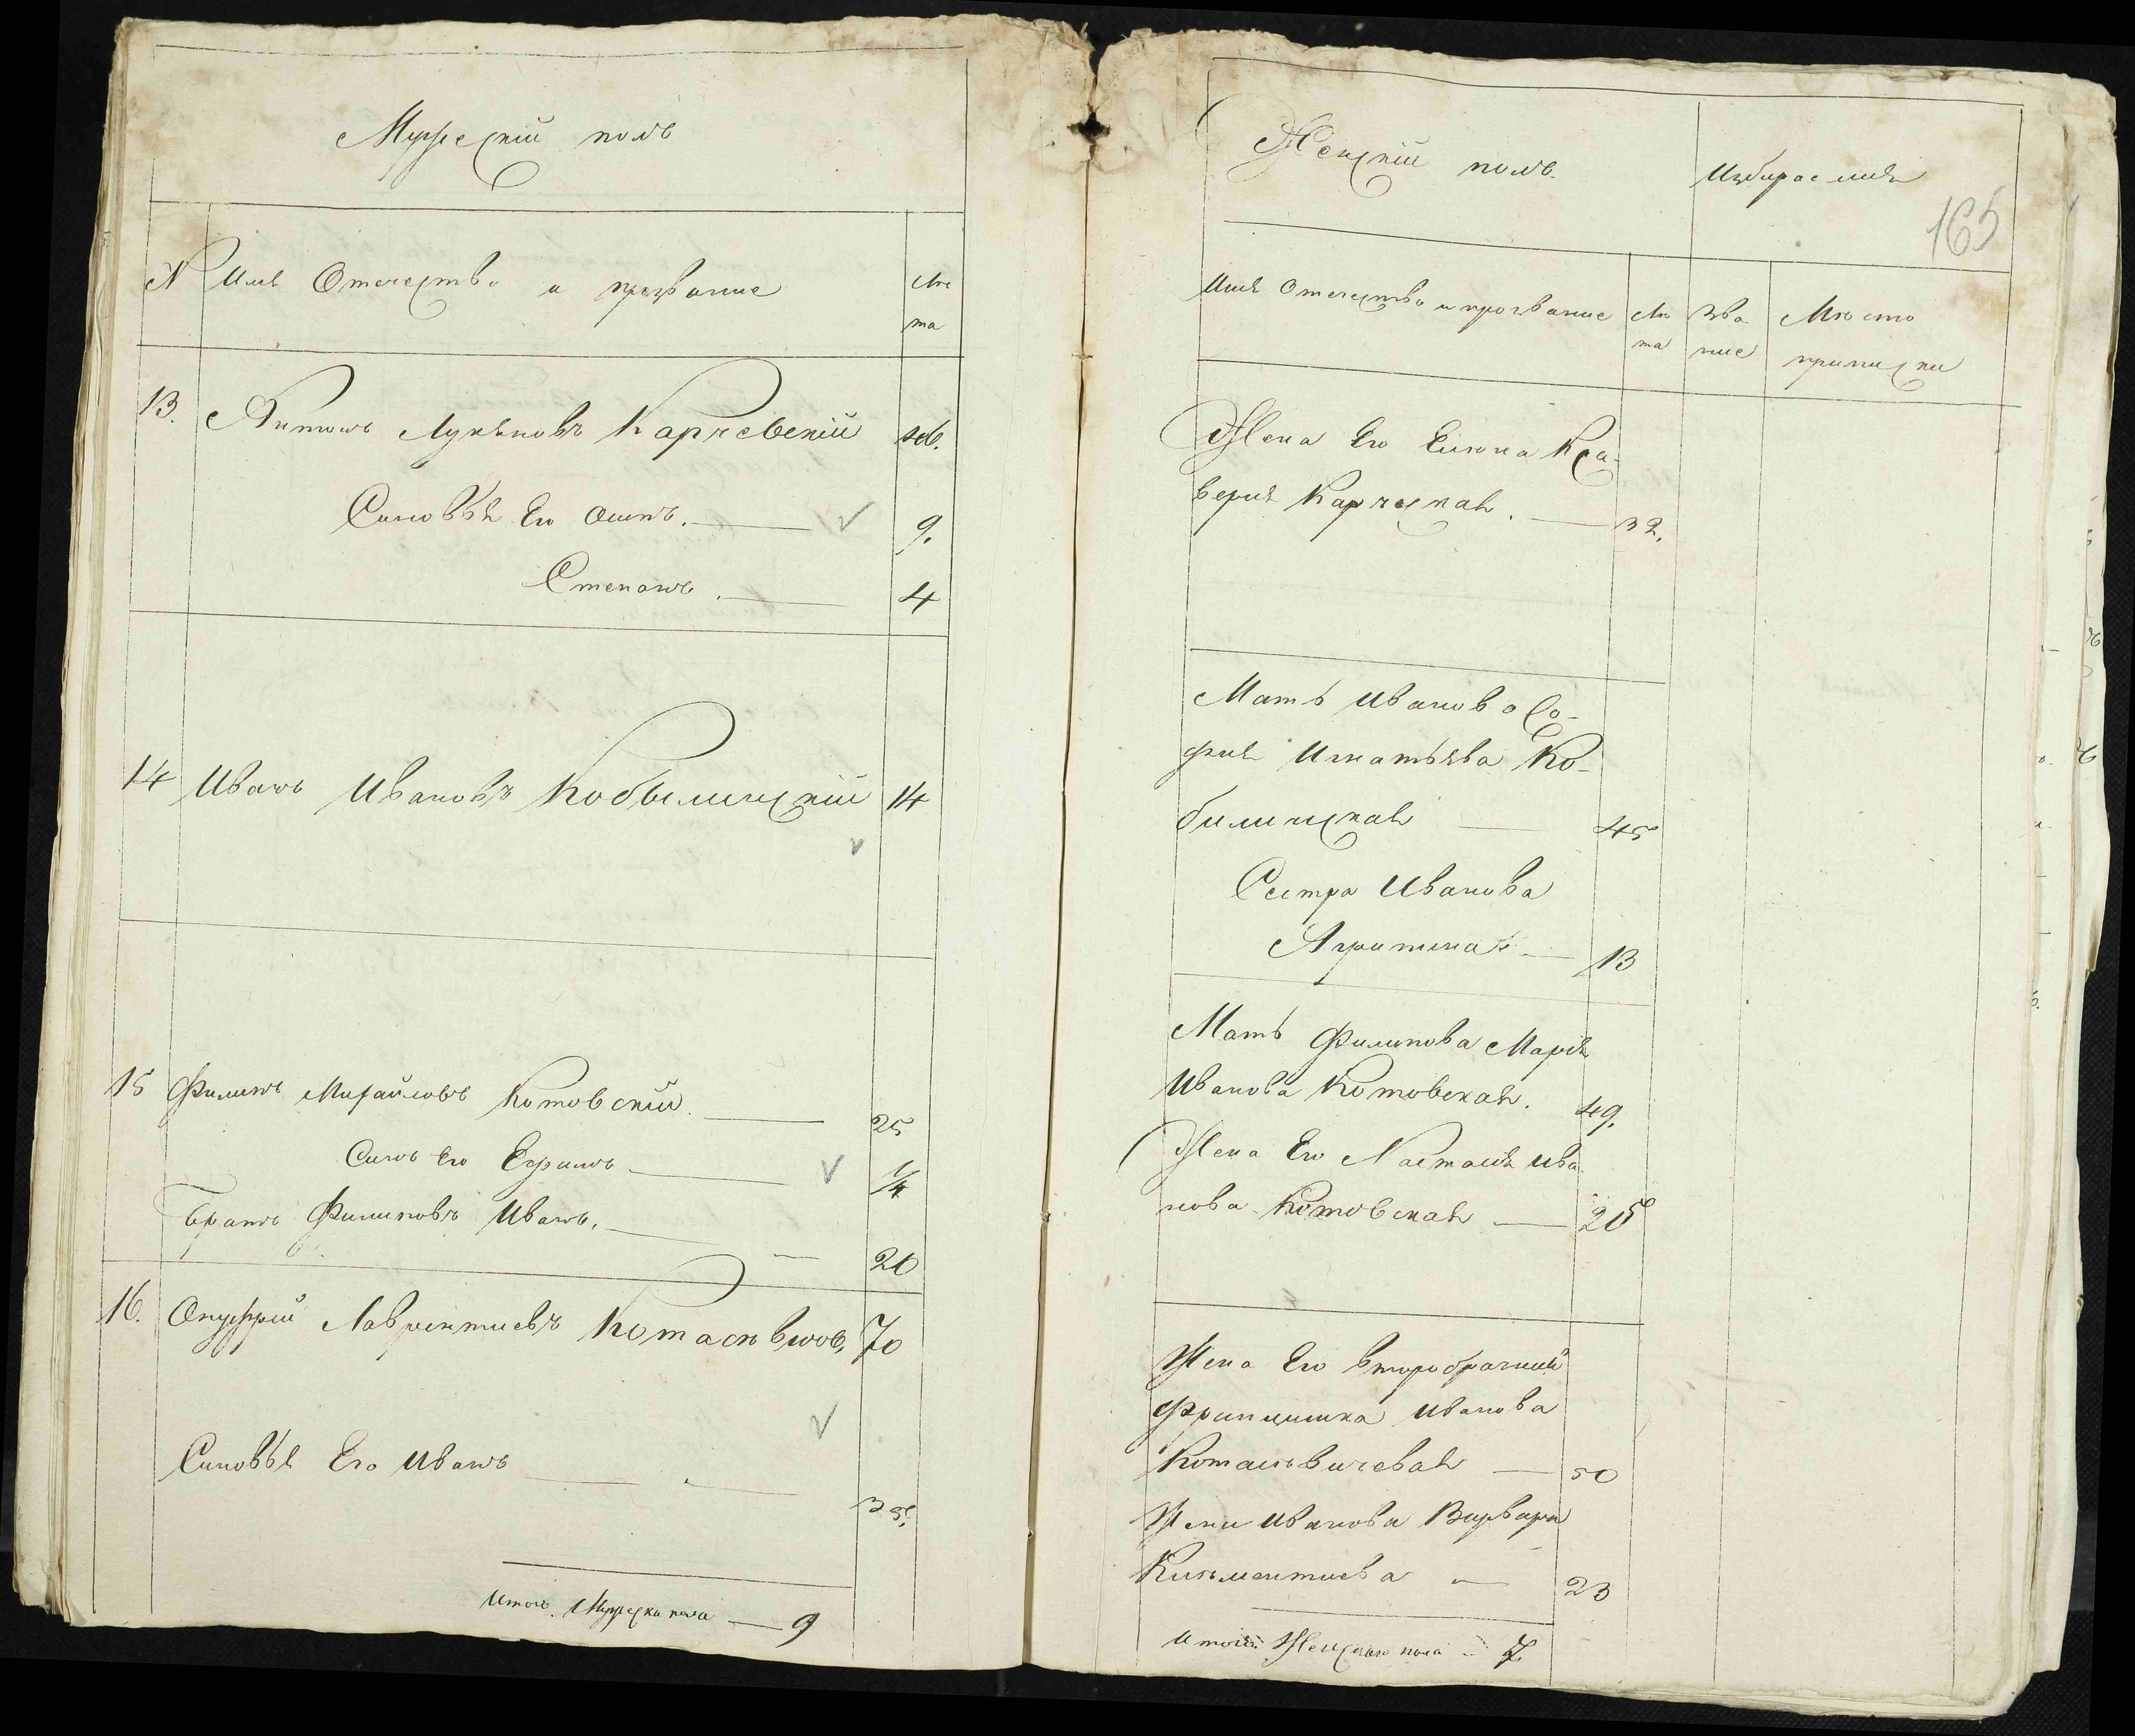 Мужескій полъ
N Имя Отечество и прозваніе Лѣ
та
13. Антонъ Лукяновъ Карчевскій 36.
Синовья Его Осипъ. 9.
Степанъ. 4
14 Иванъ Ивановъ Кобылинскій 14
15 Филипъ Михайловъ Котовскій. 25
Синъ Его Ефимъ 1/4
Братъ Филиповъ Иванъ. 20
16. Онуфрій Лаврентиевъ 70
Синовья Его Иванъ 35.
Итого Мужеска пола 9
Женскій полъ.
165
Имя Отечество и прозваніе Лѣ Зва Мѣсто
та ние приписки
Жена Его
32.
Мать Иванова Со-
фия Игнатьява Ко-
билинская 45
Сестра Иванова
Агрипина 13
Мать Филипова Марія
Иванова Котовская. 49.
Жена Его Настасія Ива
нова Котовская 25
Жена Его второбрачная
Францишка Иванова
Котасевичевая 50
Жена Иванова Варвара
23
Итого Женскаго пола 7